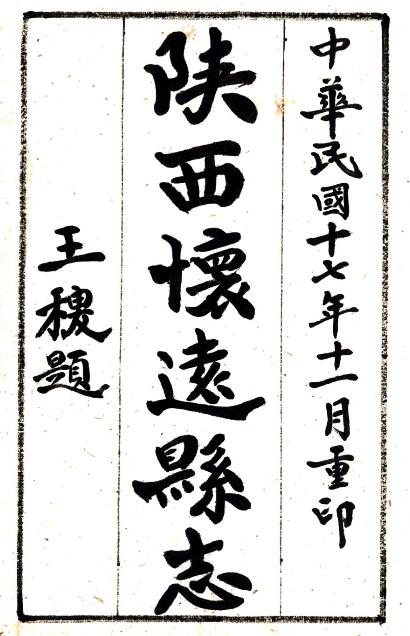 中華民國十七年十一月重印
陝西懷遠縣志
王稷題